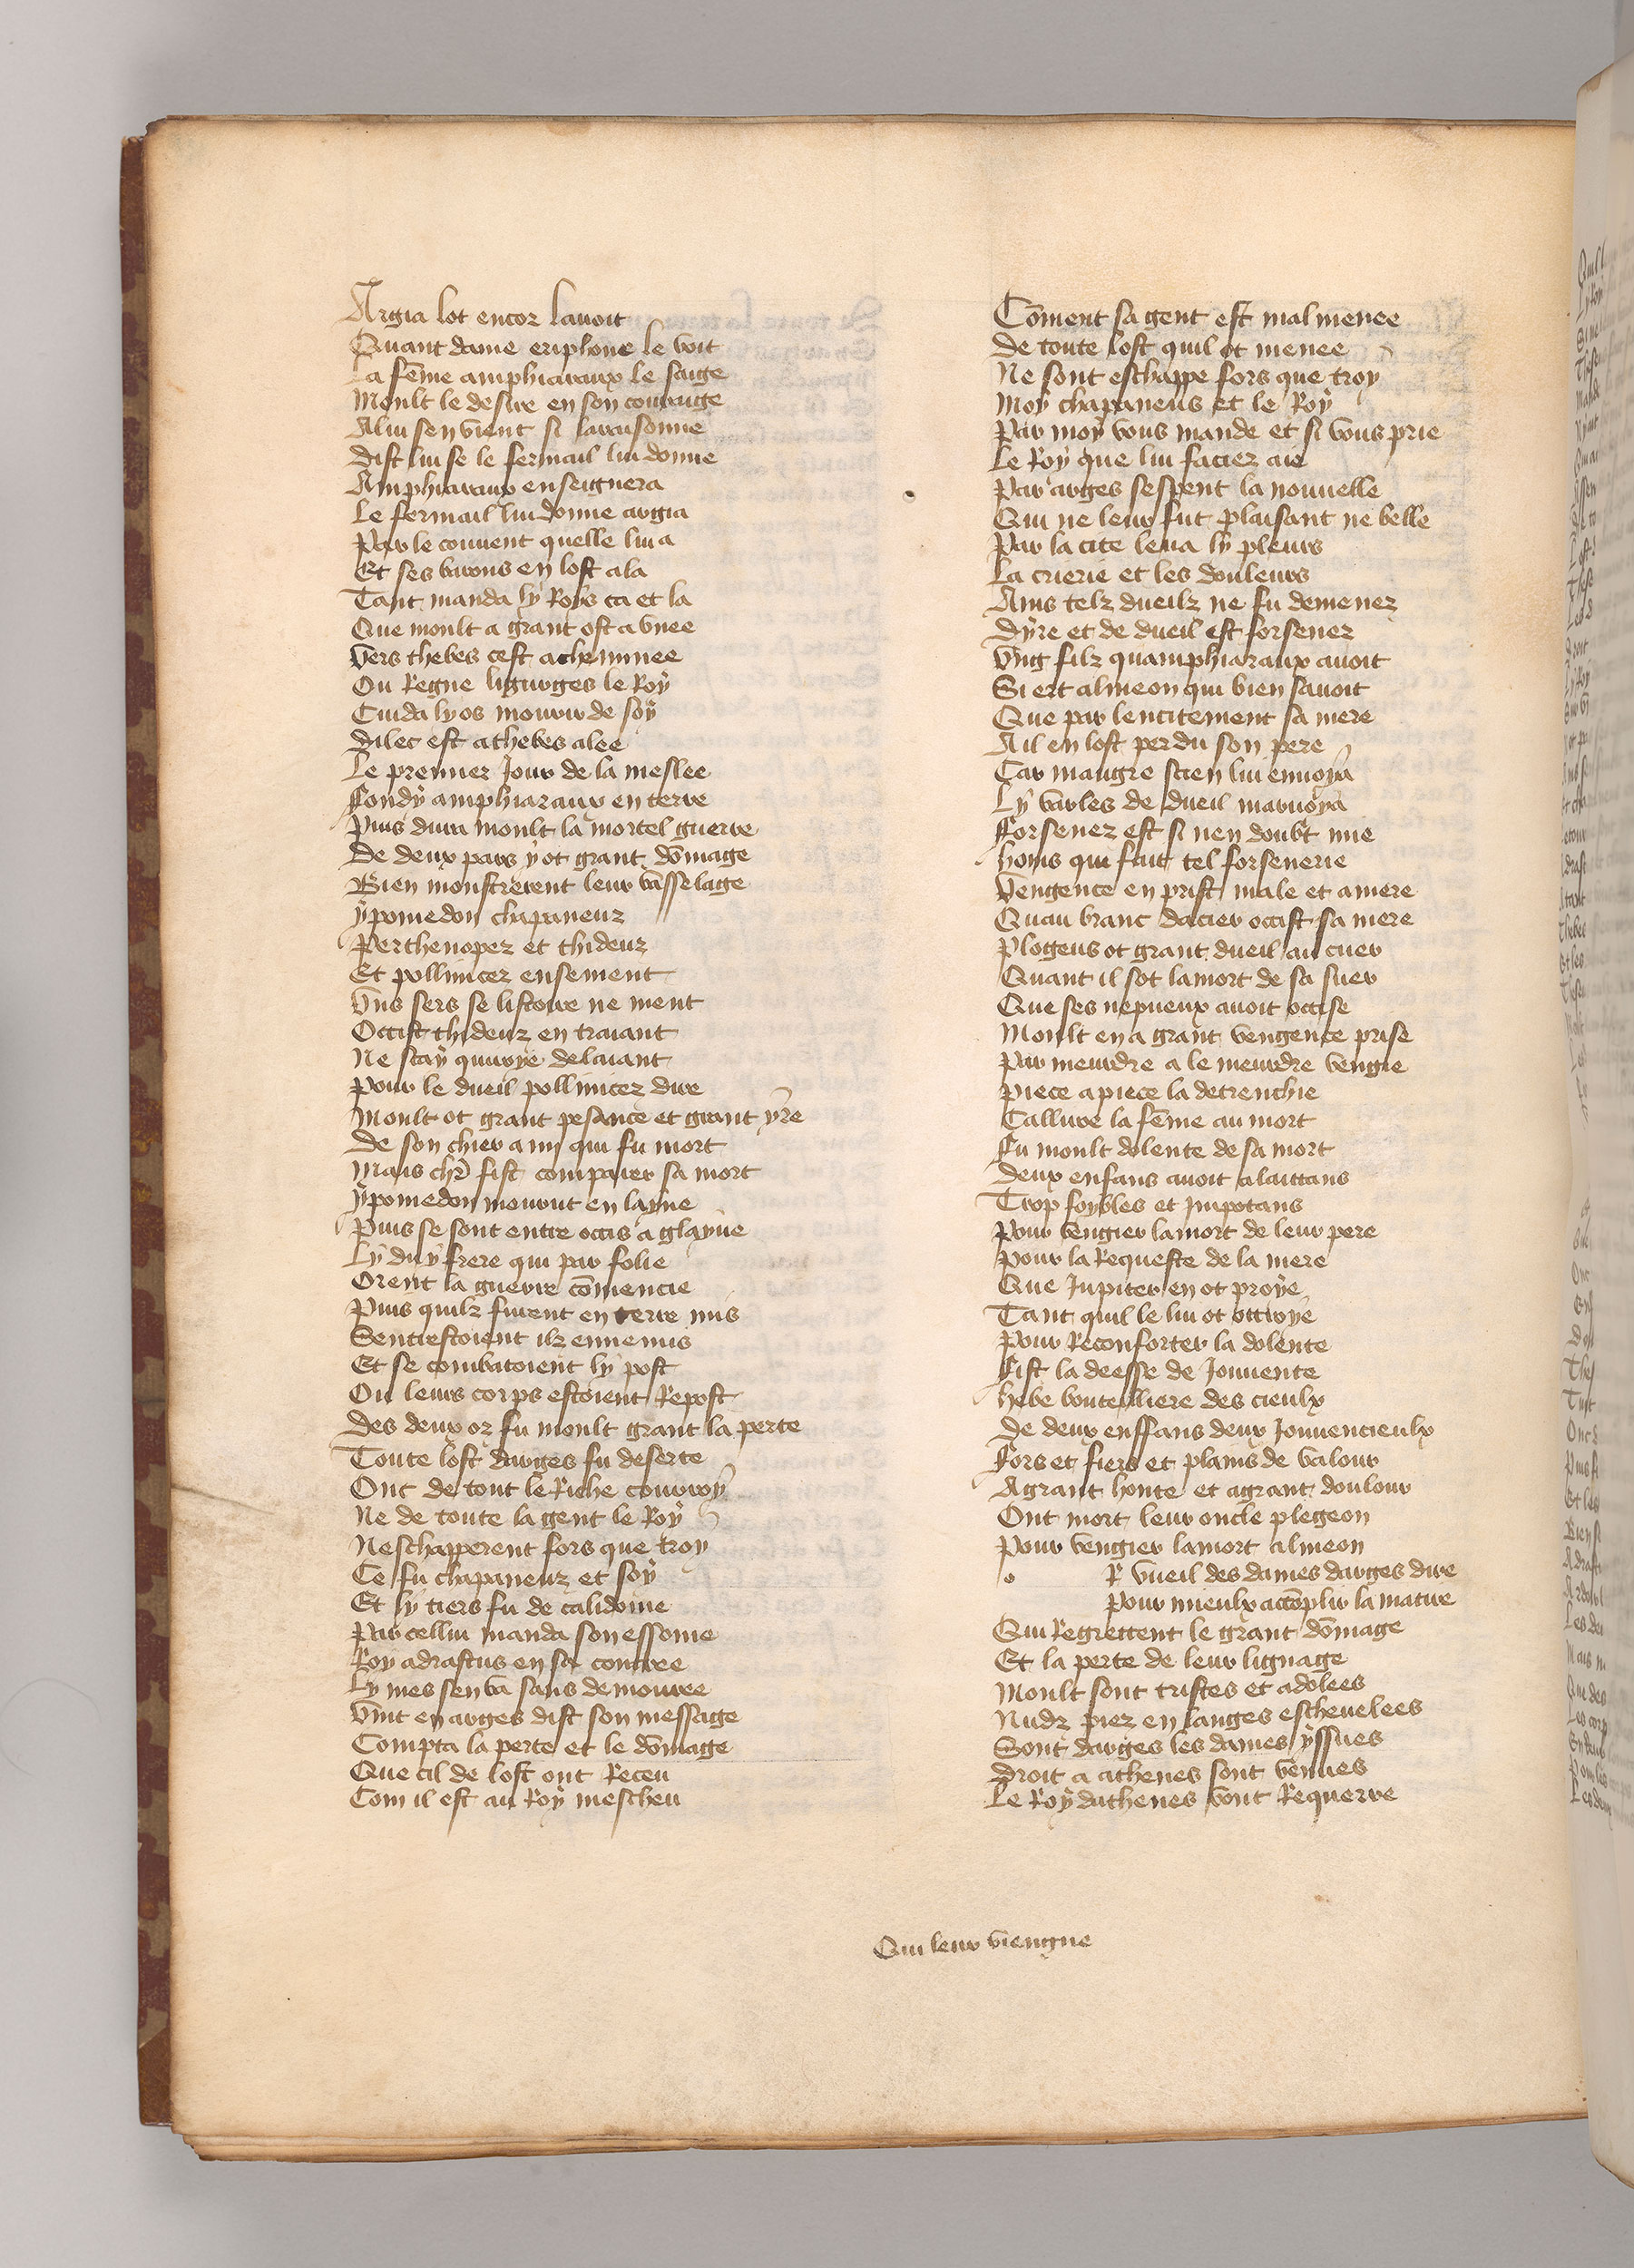 Argia lot encor lauoit
Quant dame eriphone le voit
La fēme amphiaraux le saige
Moult le desire en son couraige
A lui sen vient si laraisonne
Dist lui se le fermail lui donne
Amphiaraux enseignera
Le fermail lui donne argia
Par le couuent quelle lui a
Et ses barons en lost ala
Tant manda ly Roys ca et la
Que moult a grant ost avnee
Vers thebes cest acheminee
Ou Regne ligurges le Roy
Cuida ly os mourir de soy
Dilec est a thebes alee
Le premier Jour de la meslee
Fondy amphiaraux en terre
Puis dura moult la mortel guerre
De deux pars y ot grant dōmage
Bien monstrerent leur vasselage
Ypomedon chapaneuz
Perthenopez et thideuz
Et pollinicez ensement
Vns sers se listoire ne ment
Occist thideuz en traiant
Ne scay quiroye delaiant
Pour le dueil pollinicez dire
Moult ot grant pesance et grant yre
De son chier amy qui fu mort
Mais chr̄ fist comparer sa mort
Ypomedon mourut en layue
Puis se sont entre occis a glayue
Ly duy frere qui par folie
Orent la guerre cōmencie
Puis quilz furent en terre mis
Sentrestoient ilz ennemis
Et se combatoient ly post
Ou leurs corps estoient Repost
Des deux or fu moult grant la perte
Toute lost darges fu deserte
Onc de tout le Riche conrroy
Ne de toute la gent le Roy
Neschapperent fors que troy
Ce fu chapaneuz et soy
Et ly tiers fu de calidoine
Par cellui manda son essoine
Roy adrastus en sa contree
Ly mes sen va sans demouree
Vint en arges dist son message
Compta la perte et le dōmage
Que cil de lost ont Receu
Com il est au Roy mescheu
Cōment sa gent est mal menee
De toute lost quil ot menee
Ne sont eschappe fors que troy
Moy chapaneus et le Roy
Par moy vous mande et si vous prie
Le Roy que lui faciez aie
Par arges sespent la nouuelle
Qui ne leur fut plaisant ne belle
Par la cite leua ly pleurs
La crierie et les douleurs
Ains telz dueilz ne fu demenez
Dyre et de dueil est forsenez
Vng filz quamphiaraux auoit
Si ert almeon qui bien sauoit
Que par lencitement sa mere
A il en lost perdu son pere
Car maugre scien lui enuoya
Ly varles de dueil maruoya
Forsenez est si nen doubt mie
Homs qui fait tel forsenerie
Vengence en prist male et amere
Quau branc dacier occist sa mere
Plogeus ot grant dueil au cuer
Quant il sot la mort de sa suer
Que ses nepueux auoit occise
Moult en a grant vengence prise
Par meurdre a le meurdre vengie
Piece a piece la detrenchie
Callure la fēme au mort
Fu moult dolente de sa mort
Deux enfans auoit alaittans
Trop foybles et Jmpotans
Pour vengier la mort de leur pere
Pour la Requeste de la mere
Que Jupiter en ot proye
Tant quil le lui ot ottroye
Pour Reconforter la dolente
Fist la deesse de Jouuente
Hebe bouteilliere des cieulx
De deux enffans deux Jouuencieulx
Fors et fiers et plains de valour
A grant honte et a grant doulour
Ont mort leur oncle plegeon
Pour vengier la mort almeon
o R vueil des dames darges dire
Pour mieulx accōplir la matire
Qui Regrettent le grant dōmage
Et la perte de leur lignage
Moult sont tristes et adolees
Nudz piez en langes escheuelees
Sont darges les dames yssues
Droit a athenes sont venues
Le Roy dathenes vont Requerre
Qui leur viengne